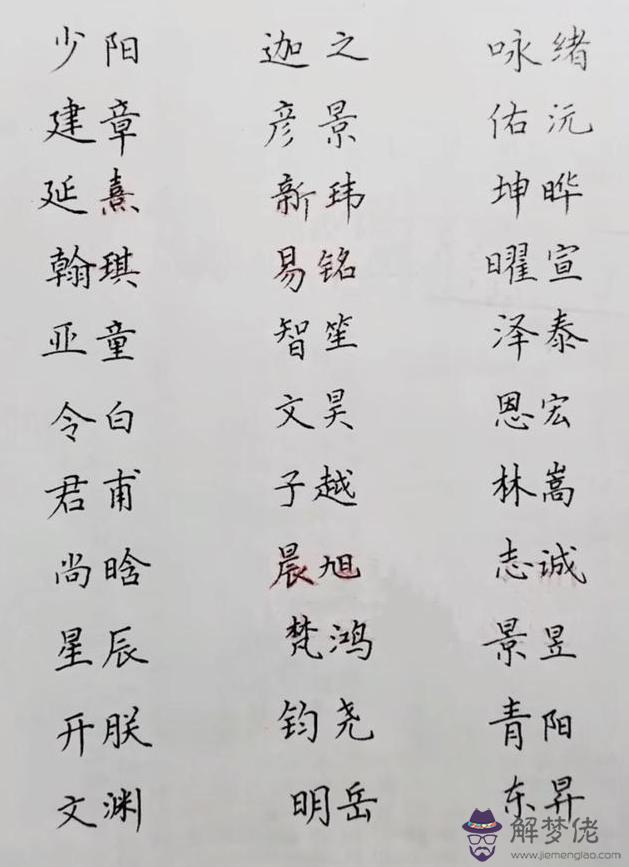 少阳 迦之 咏绪
建章 彦景 佑沅
延熹 新玮 坤晔
翰琪 易铭 曜宣
亚童 智笙 泽泰
令白 文昊 恩宏
君甫 子越 林嵩
尚晗 晨旭 志诚
星辰 梵鸿 景昱
开朕 钧尧 青阳
文渊 明岳 东昇
解梦佬
www.jiemenglao.com